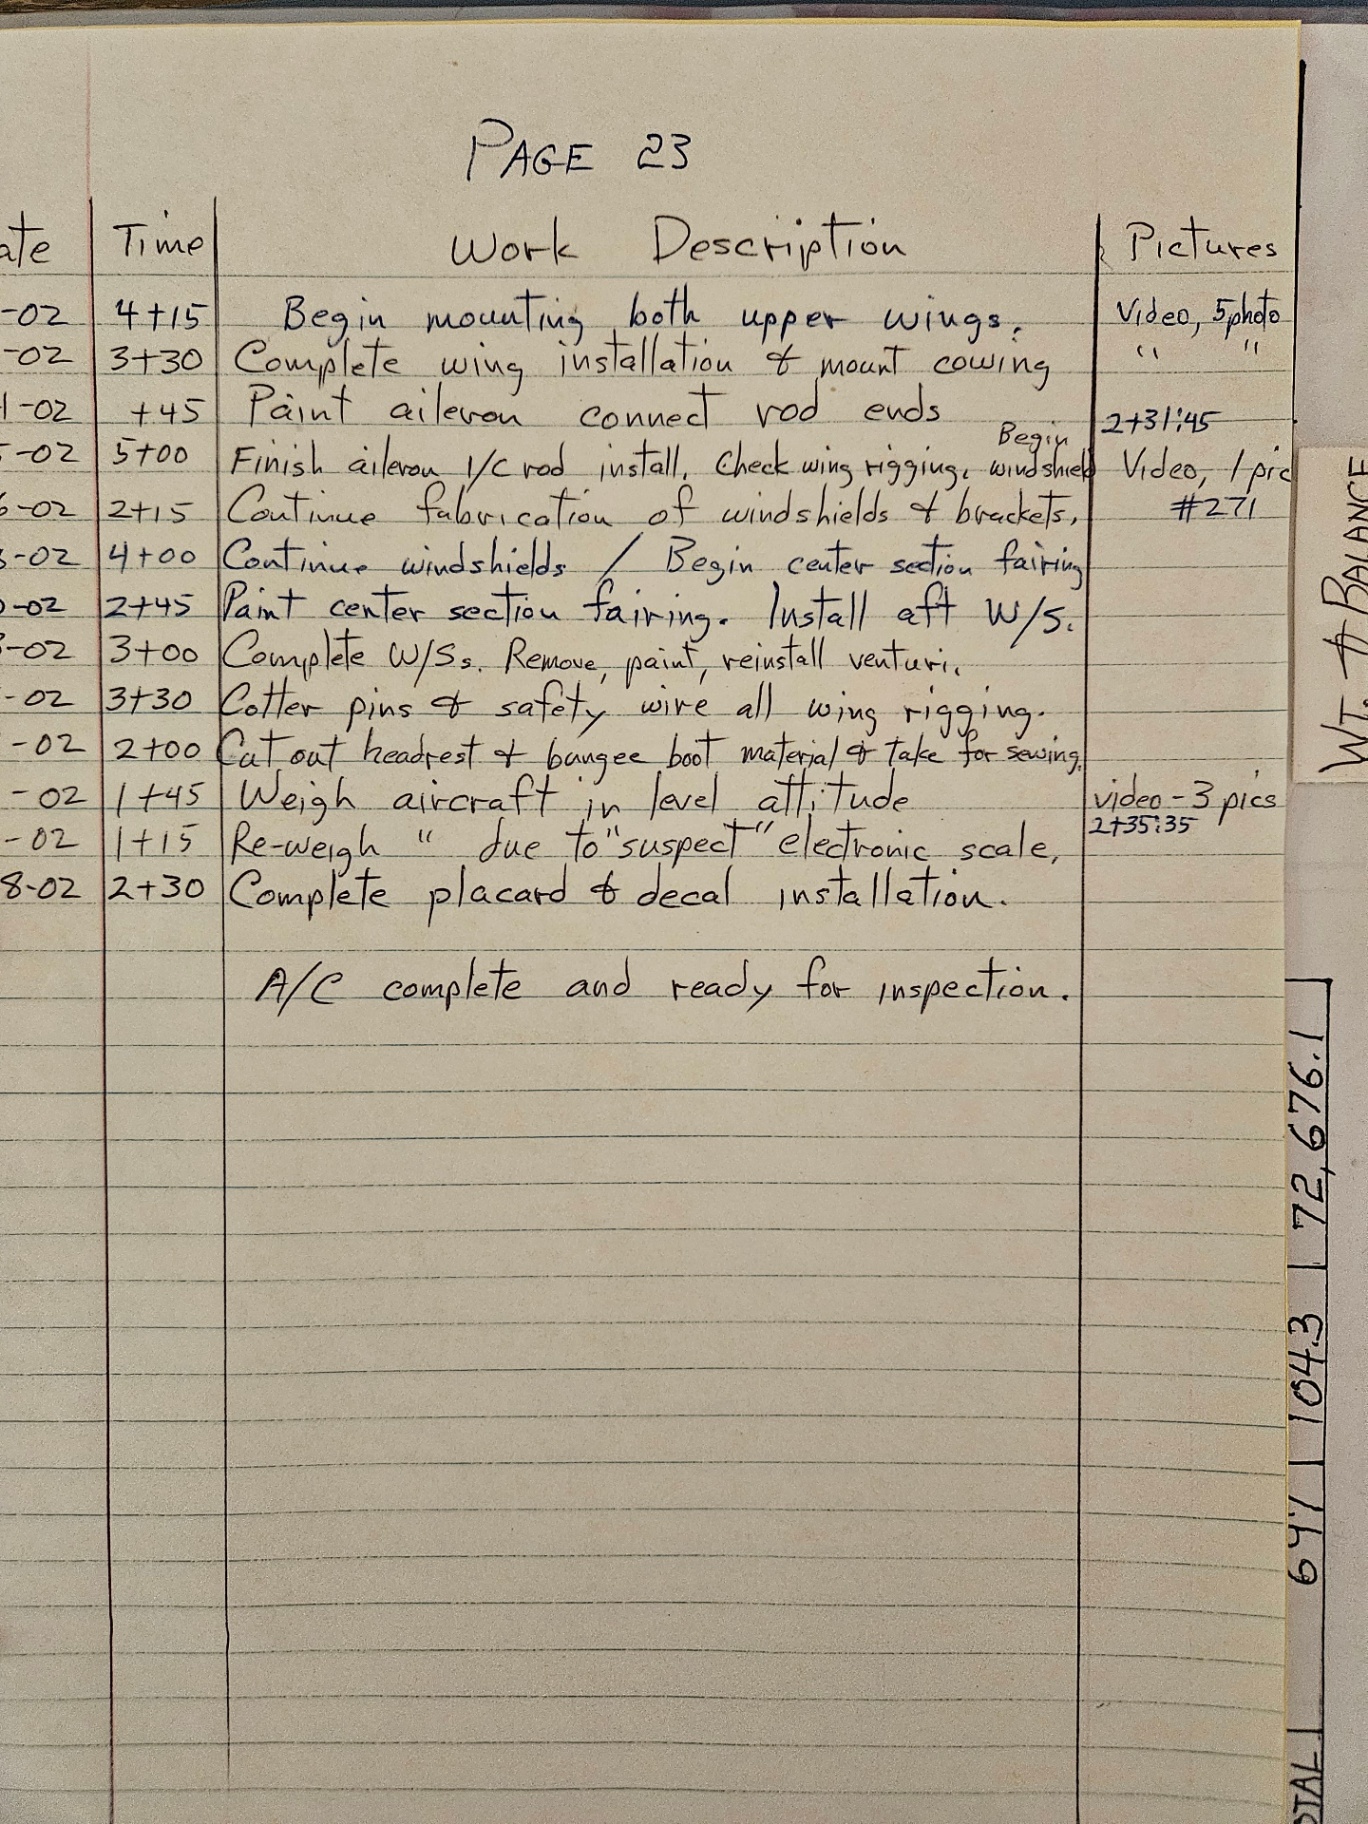 PAGE 23
ate Time Work Description Pictures
-02 4+15 Begin mounting both upper wings. Video, 5photo
-02 3+30 Complete wing installation & mount cowing " "
1-02 +45 Paint aileron connect rod ends 2+31:45
Begin
5-02 5+00 Finish aileron I/C rod install. Check wing rigging. windshield Video, 1 pic
6-02 2+15 Continue fabrication of windshields & brackets. #271
-02 4+00 Continue windshields / Begin center section fairing
-02 2+45 Paint center section fairing. Install aft W/S.
-02 3+00 Complete W/Ss. Remove, paint, reinstall venturi.
-02 3+30 Cotter pins & safety wire all wing rigging.
-02 2+00 Cut out headrest & bungee boot material & take for sewing.
-02 1+45 Weigh aircraft in level attitude video - 3 pics
-02 1+15 Re-weigh " due to "suspect" electronic scale. 2+35:35
8-02 2+30 Complete placard & decal installation.
A/C complete and ready for inspection.
WT. & BALANCE
OTAL 647 104.3 72,676.1